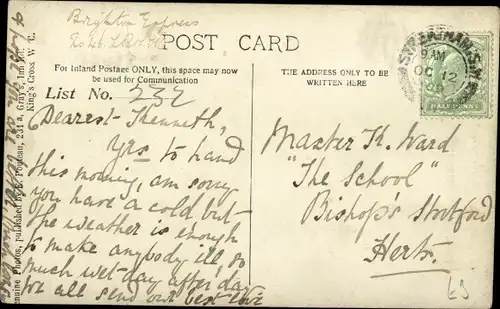 Brighton Express
No 46. LB &
POST CARD
For Inland Postage ONLY, this space may now
be used for Communication
THE ADDRESS ONLY TO BE
WRITTEN HERE
List No. 232
Dearest Kenneth,
Yrs to hand
this morning, am sorry
you have a cold but
the weather is enough
to make anybody ill, so
much wet day after day
We all send our best love
Genuine Photos, published by E. Pouteau, 231a, Gray's Inn Rd.
King's Cross W.C.
Master K. Ward
"The School"
Bishop's Stortford
Herts.
STREATHAM S.W.
9 AM
OC 12
HALF PENNY